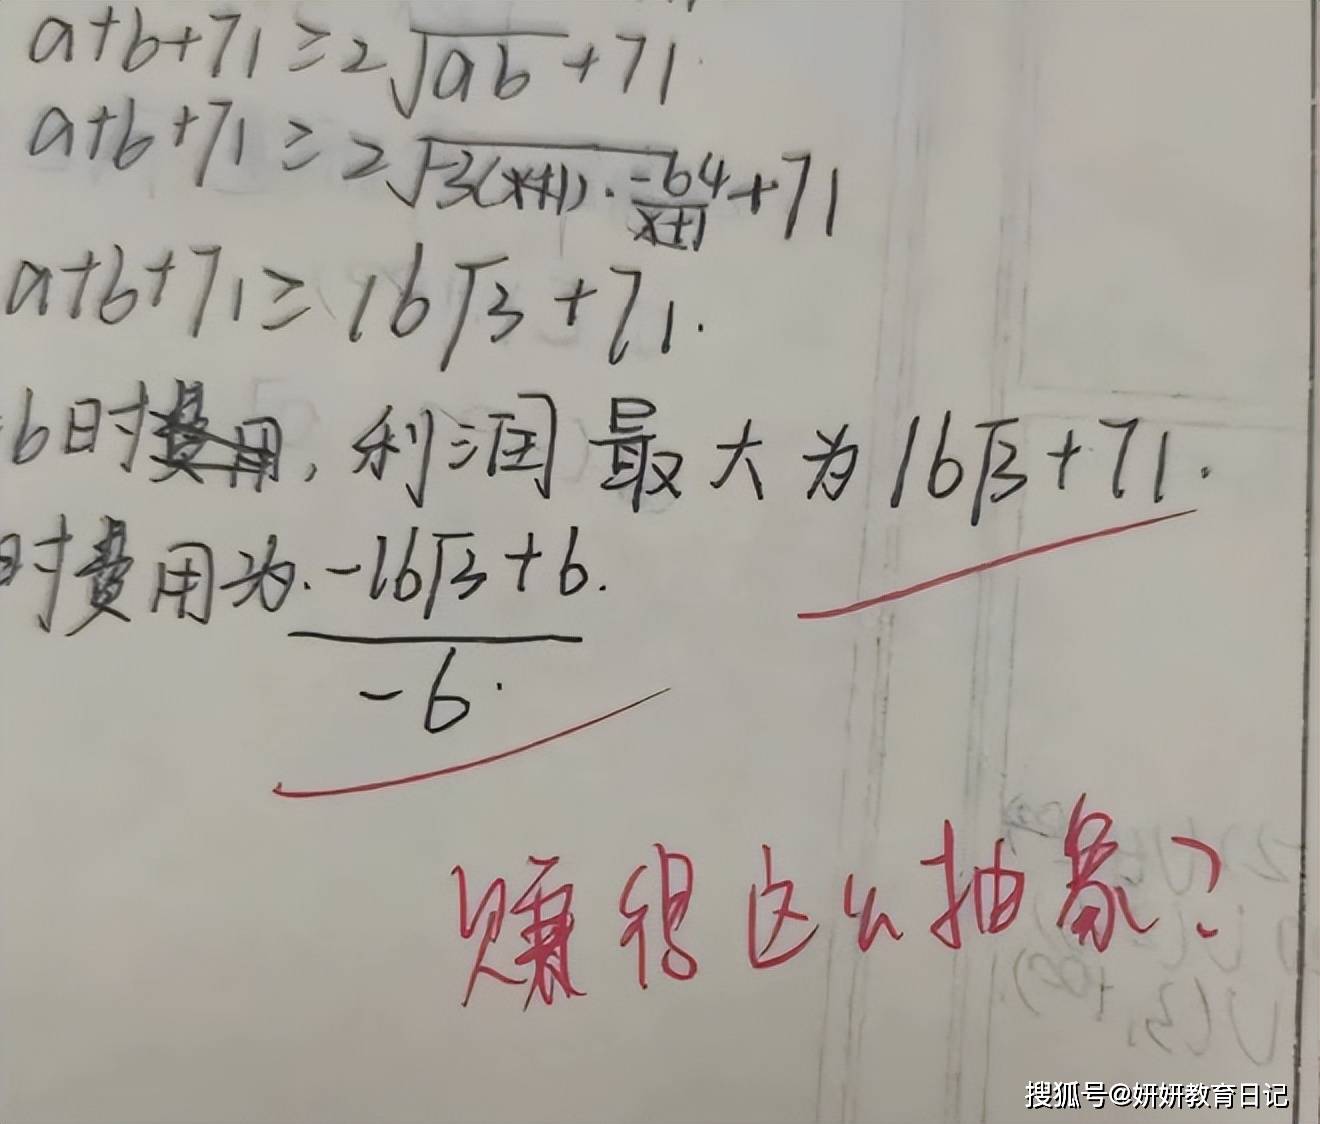 a+b+71≥2√ab+71.
a+b+71≥2√-3(x+1)·-64/x+1+71
a+b+71≥16√3+71.
b时, 利润最大为16√3+71.
时费用为.-16√3+6./-6.
赚得这么抽象?
搜狐号@妍妍教育日记